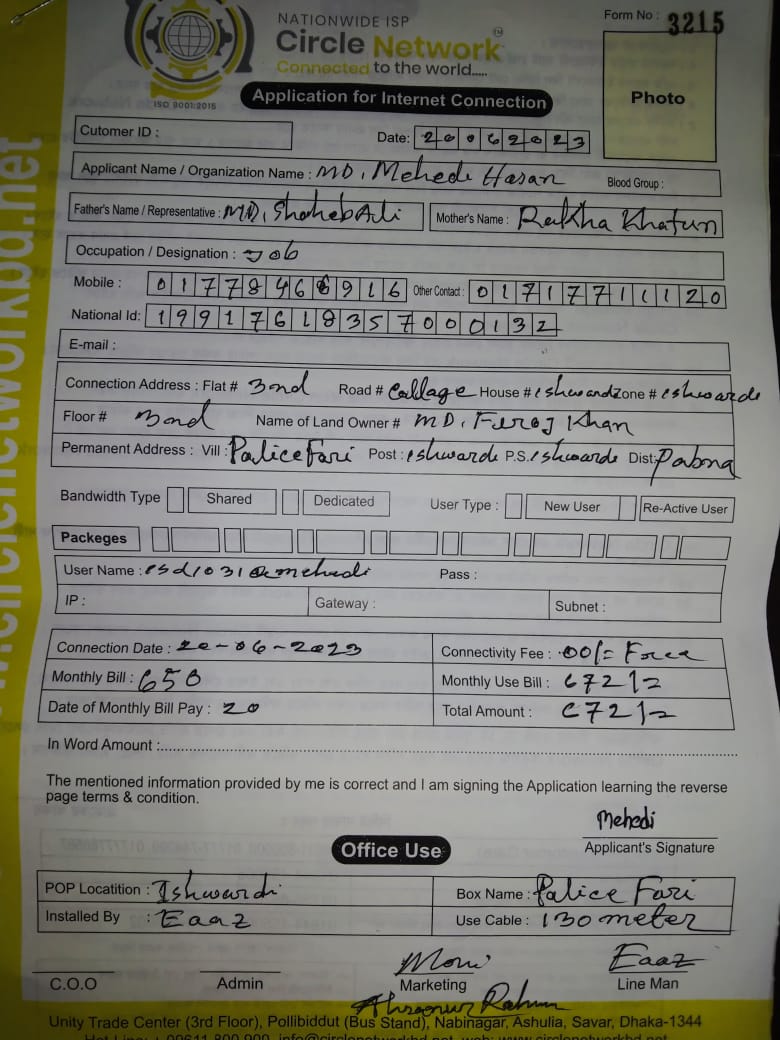 NATIONWIDE ISP
Circle Network
Connected to the world.....
ISO 9001:2015
Form No : 3215
Application for Internet Connection
Photo
Cutomer ID :
Date: 20062023
Applicant Name / Organization Name : MD. Mehedi Hasan Blood Group :
Father's Name / Representative : MD. Shoheb Ali Mother's Name : Rekha Khatun
Occupation / Designation : Job
Mobile : 01778468916 Other Contact : 01717711120
National Id: 19917618357000132
E-mail :
Connection Address : Flat # 3nd Road # Collage House # eshward Zone # eshwarde
Floor # 3nd Name of Land Owner # MD. Feroj Khan
Permanent Address : Vill : Palice Fari Post : eshwarde P.S. eshwarde Dist: Pabna
Bandwidth Type Shared Dedicated User Type : New User Re-Active User
Packeges
User Name : esd1031@mehedi Pass :
IP : Gateway : Subnet :
Connection Date : 20-06-2023 Connectivity Fee : 00/= Free
Monthly Bill : 650 Monthly Use Bill : 672/=
Date of Monthly Bill Pay : 20 Total Amount : 672/=
In Word Amount :
The mentioned information provided by me is correct and I am signing the Application learning the reverse
page terms & condition.
Mehedi
Applicant's Signature
Office Use
POP Locatition : Ishwardi Box Name : Palice Fari
Installed By : Eaaz Use Cable : 130 meter
Moni Eaaz
C.O.O Admin Marketing Line Man
Unity Trade Center (3rd Floor), Pollibiddut (Bus Stand), Nabinagar, Ashulia, Savar, Dhaka-1344
www.circlenetworkbd.net